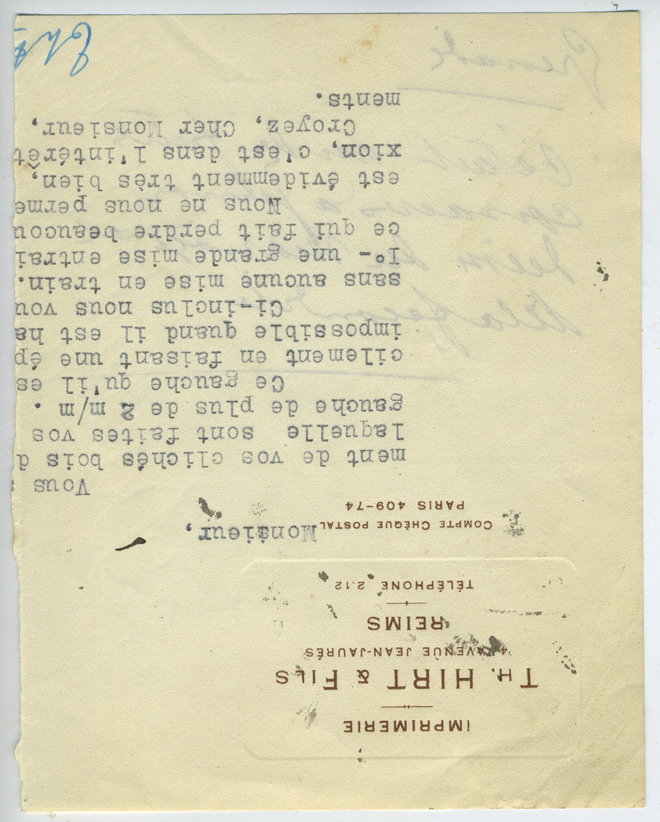 IMPRIMERIE
TH. HIRT & FILS
4, AVENUE JEAN-JAURÈS
REIMS
TÉLÉPHONE 2.12
COMPTE CHÈQUE POSTAL
PARIS 409-74
Monsieur,
Vous
ment de vos clichés bois d
laquelle sont faites vos
gauche de plus de 2 m/m .
Ce gauche qu'il es
cilement en faisant une ép
impossible quand il est ha
Ci-inclus nous vou
sans aucune mise en train.
I°- une grande mise entrai
ce qui fait perdre beaucou
Nous ne nous perme
est évidemment très bien,
xion, c'est dans l'intérêt
Croyez, Cher Monsieur,
ments.